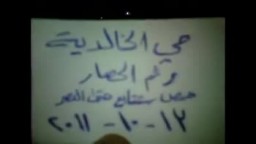 حي الخالدية
رغم الحصار
حمص ستقاوم حتى النصر
١٢-١٠-٢٠١١